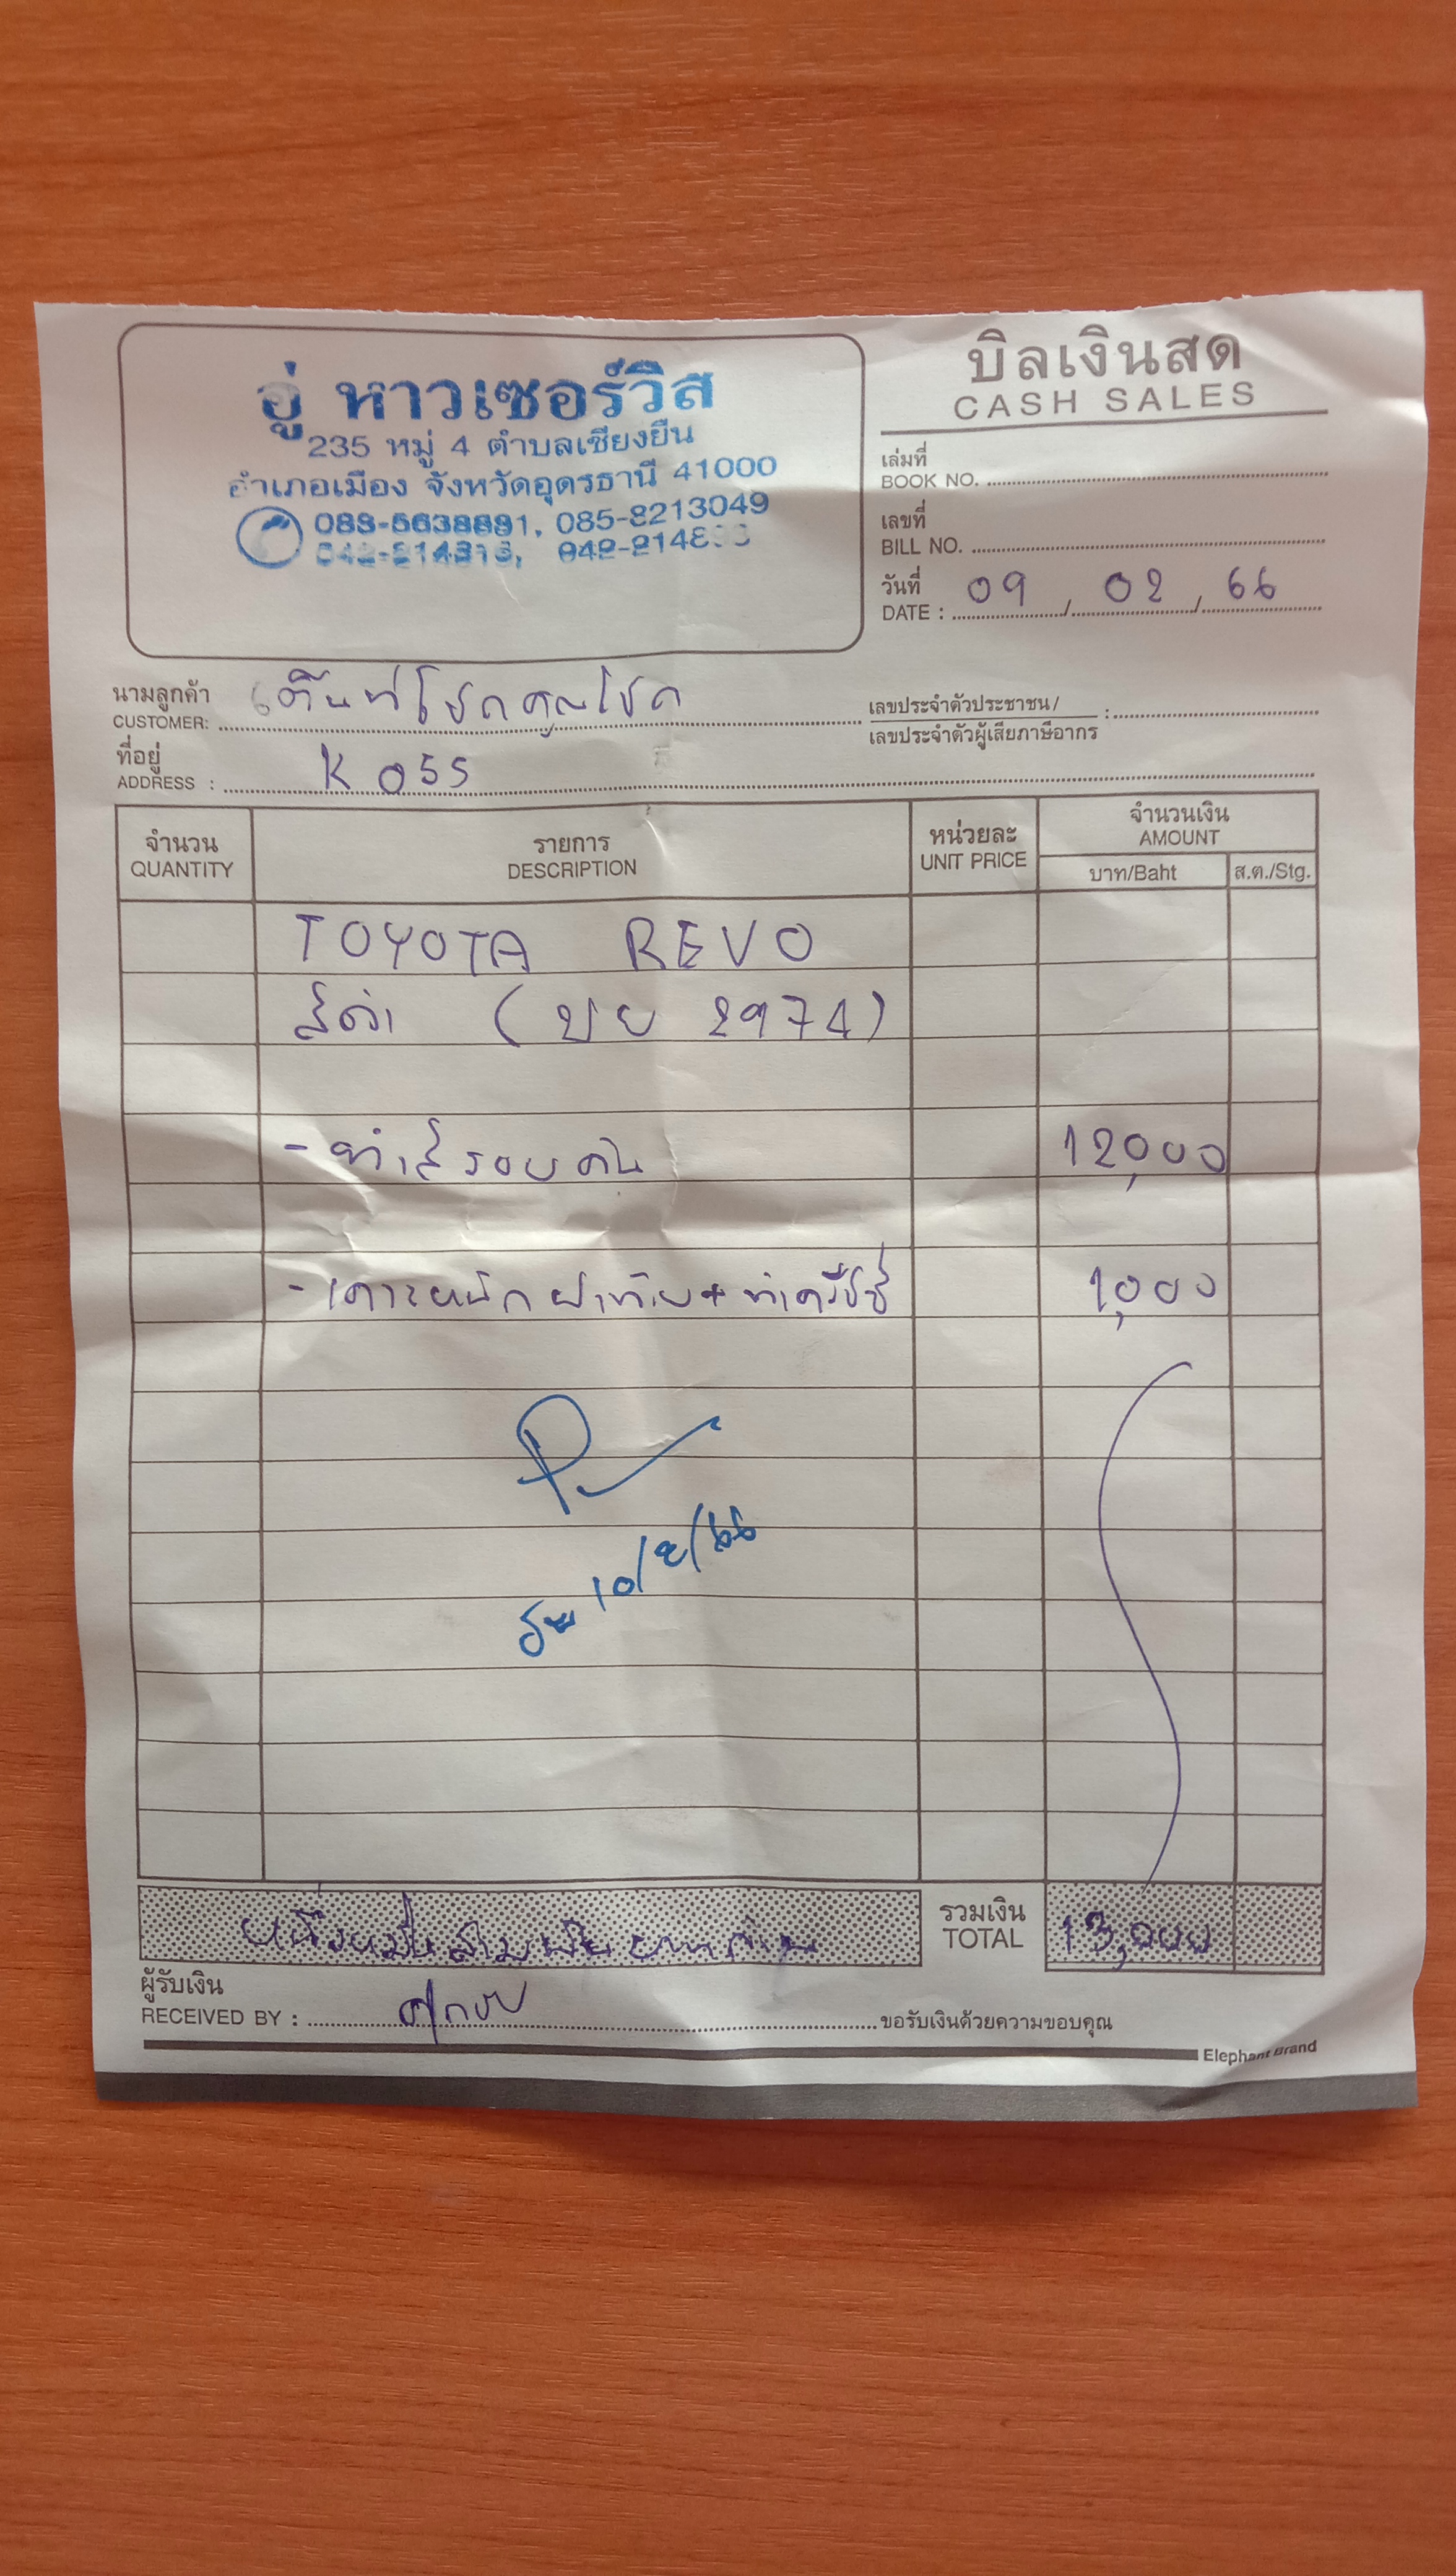 อู่ หาวเซอร์วิส
235 หมู่ 4 ตำบลเชียงยืน
อำเภอเมือง จังหวัดอุดรธานี 41000
085-8213049
บิลเงินสด
CASH SALES
เล่มที่
BOOK NO.
เลขที่
BILL NO.
วันที่
DATE : 09 / 02 / 66
นามลูกค้า
CUSTOMER: เต็นท์โชคคูณโชค
เลขประจำตัวประชาชน /
เลขประจำตัวผู้เสียภาษีอากร :
ที่อยู่
ADDRESS : K 055
จำนวน
QUANTITY
รายการ
DESCRIPTION
หน่วยละ
UNIT PRICE
จำนวนเงิน
AMOUNT
บาท/Baht
ส.ต./Stg.
TOYOTA REVO
สีดำ (บย 2974)
- ทำสีรอบคัน 12,000
- เคาะหนัก ฝาท้าย + 1,000
10/2/66
หนึ่งหมื่นสามพันบาทถ้วน
รวมเงิน
TOTAL 13,000
ผู้รับเงิน
RECEIVED BY :
ขอรับเงินด้วยความขอบคุณ
Elephant Brand